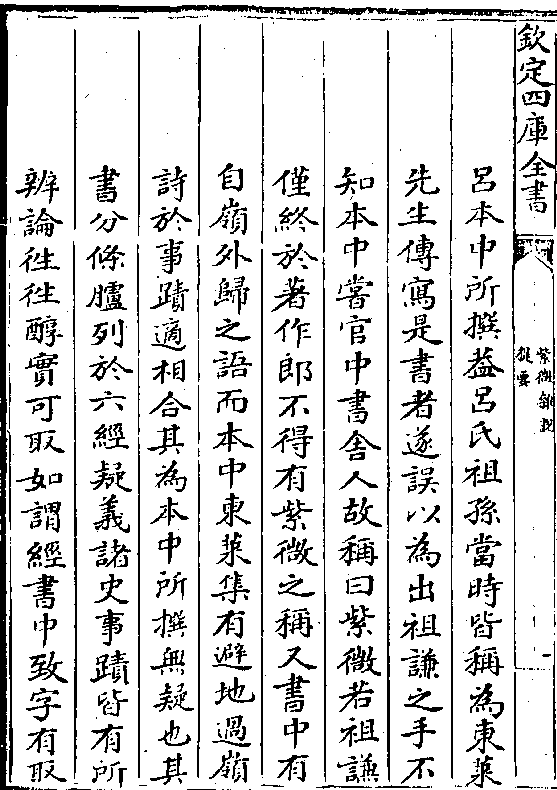 欽定四庫全書
紫微雜說
提要
一
呂本中所撰葢呂氏祖孫當時皆稱為東萊
先生傳寫是書者遂誤以為出祖謙之手不
知本中嘗官中書舍人故稱曰紫微若祖謙
僅終於著作郎不得有紫微之稱又書中有
自嶺外歸之語而本中東萊集有避地過嶺
詩於事蹟適相合其為本中所撰無疑也其
書分條臚列於六經疑義諸史事蹟皆有所
辨論徃徃醇實可取如謂經書中致字有取